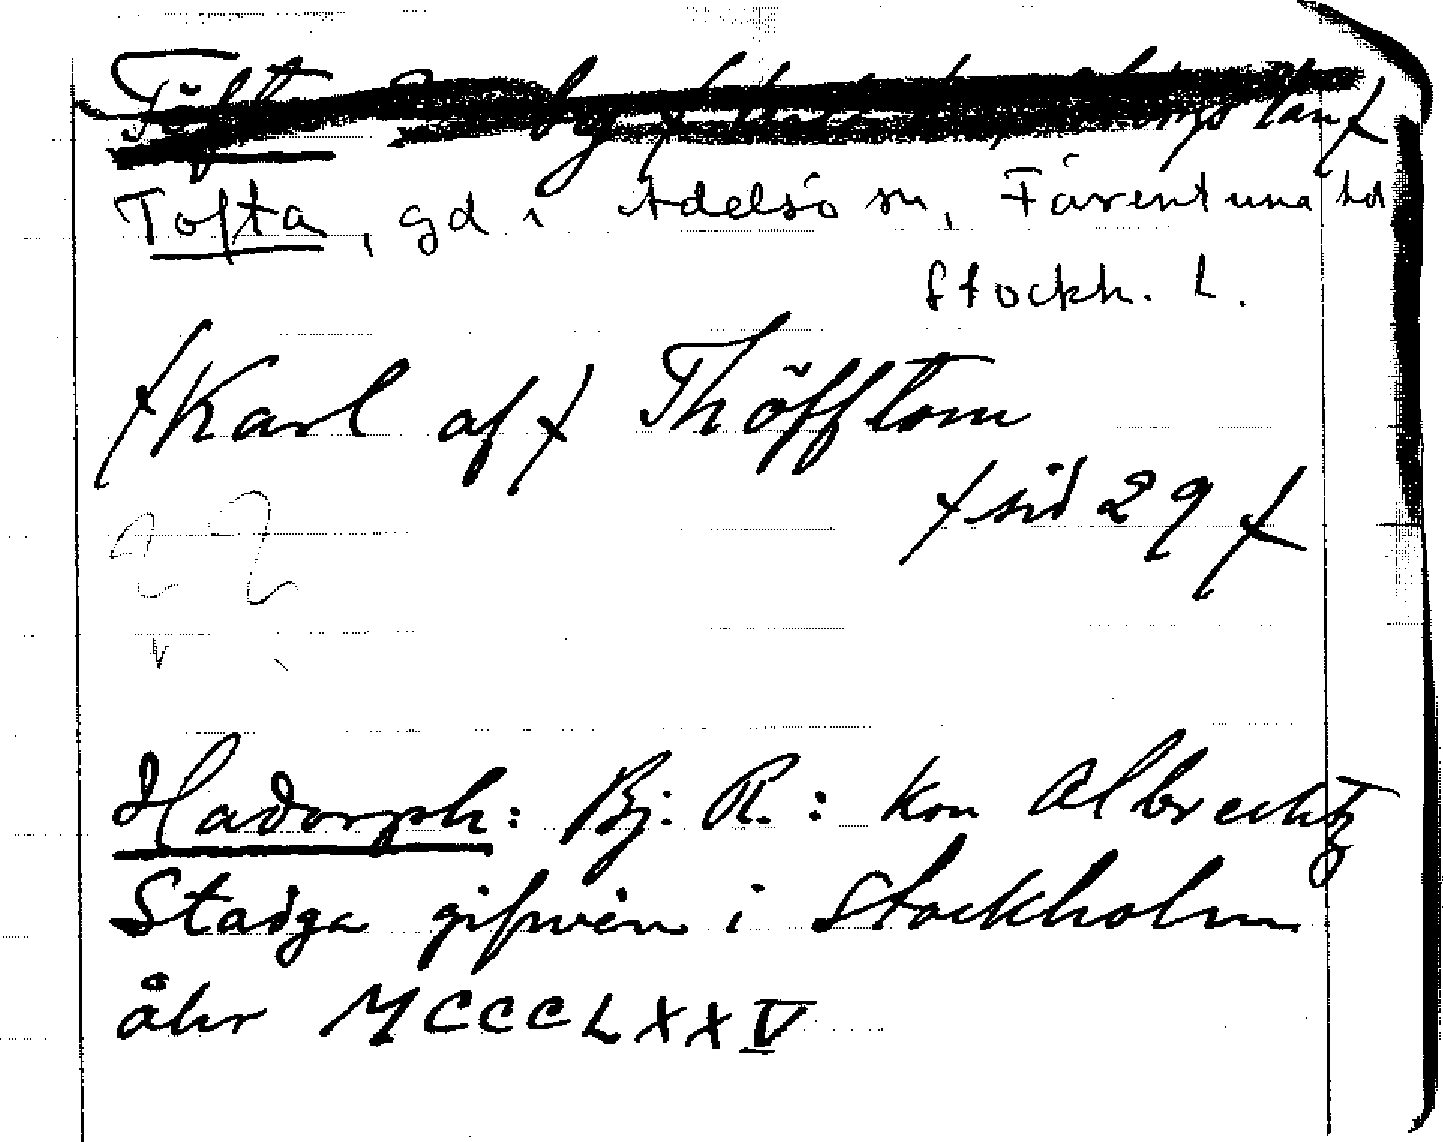 Tofta, gd i Adelsö sn, Färentuna hd
Stockh. L.
/Karl af/ Thöfftom
/sid 29/
Hadorph: Bj. R.: Kon Albrechtz
Stadga gifwen i Stockholm
åhr MCCCLXXV